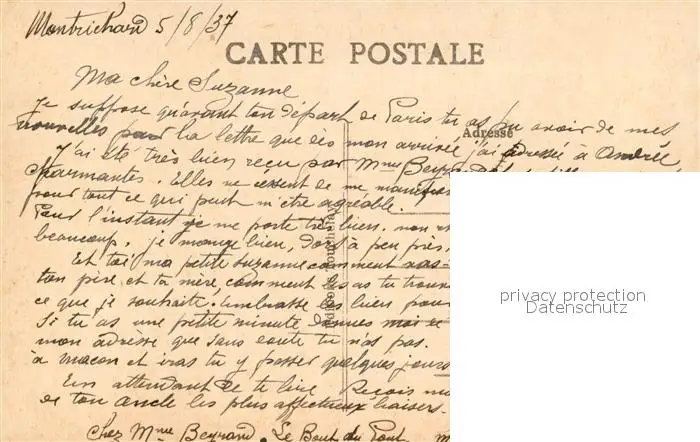 Montrichard 5/8/37
CARTE POSTALE
Ma chère Suzanne
Je suppose qu'avant ton départ de Paris tu as pu avoir de mes
Adresse
nouvelles par la lettre que dès mon arrivée j'ai adressée à Andrée
J'ai été très bien reçu par Mme Beyrand
charmantes. Elles ne cessent de me
pour tout ce qui peut m'être agréable.
Pour l'instant je me porte très bien.
beaucoup, je mange bien, dors à peu près.
Et toi ma petite Suzanne comment vas-
ton père et ta mère, comment les as tu
ce que je souhaite. Embrasse les bien pour
Si tu as une petite minute donnes moi
mon adresse que sans doute tu n'as pas.
à Macon et iras tu y passer quelques jours
En attendant de te lire Reçois
de ton oncle les plus affectueux baisers.
Chez Mme Beyrand. Le Bout du Pont
privacy protection
Datenschutz